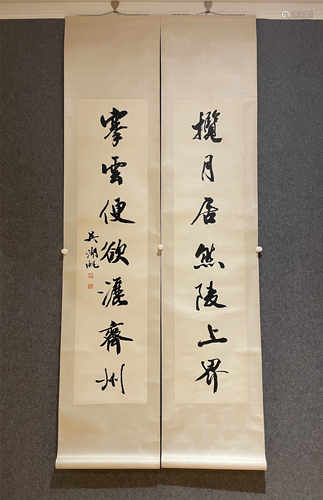 攬月居然陵上界
搴雲便欲洭齊州
吴湖帆